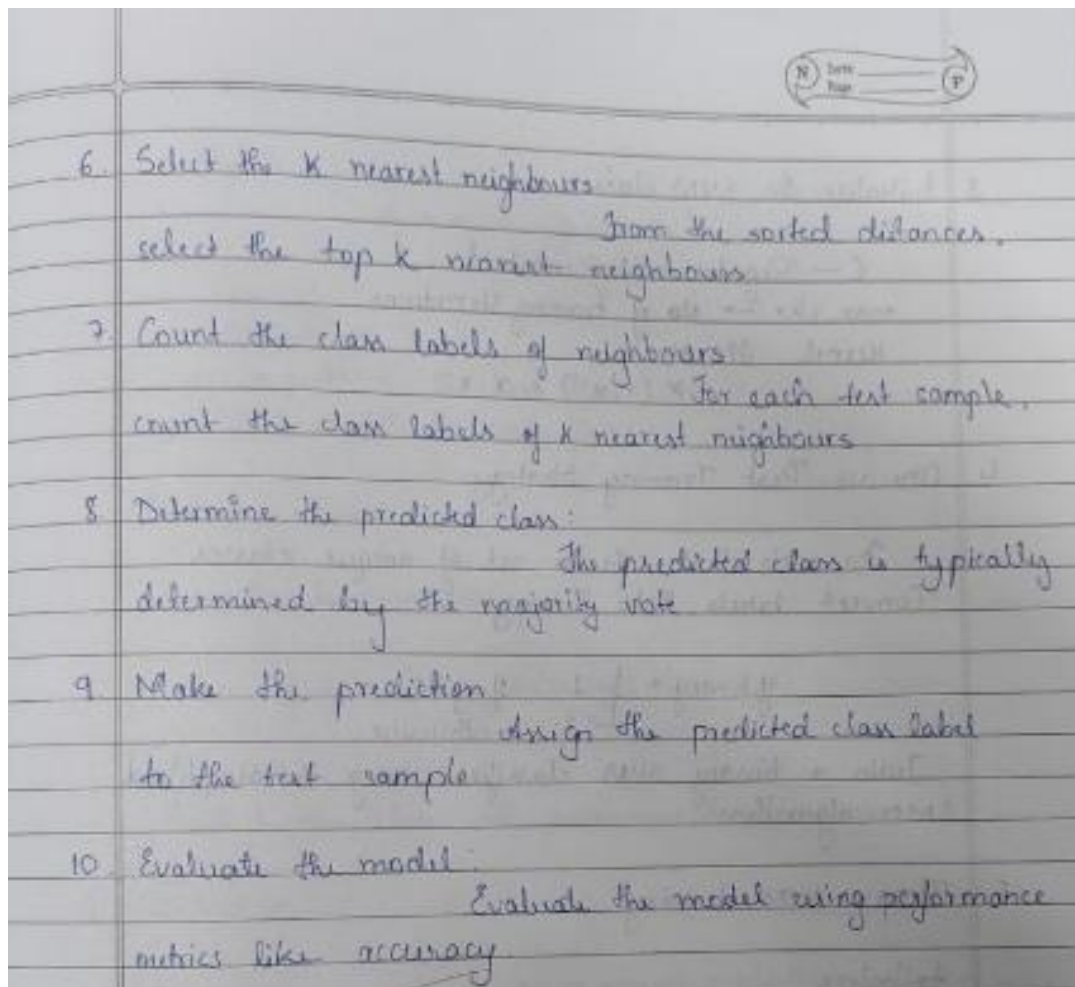 N Date P
Page
6. Select the K nearest neighbours
From the sorted distances,
select the top k nearest neighbours.
7. Count the class labels of neighbours
For each test sample,
count the class labels of k nearest neighbours
8. Determine the predicted class:
The predicted class is typically
determined by the majority vote
9. Make the prediction:
Assign the predicted class label
to the test sample.
10. Evaluate the model:
Evaluate the model using performance
metrics like accuracy.